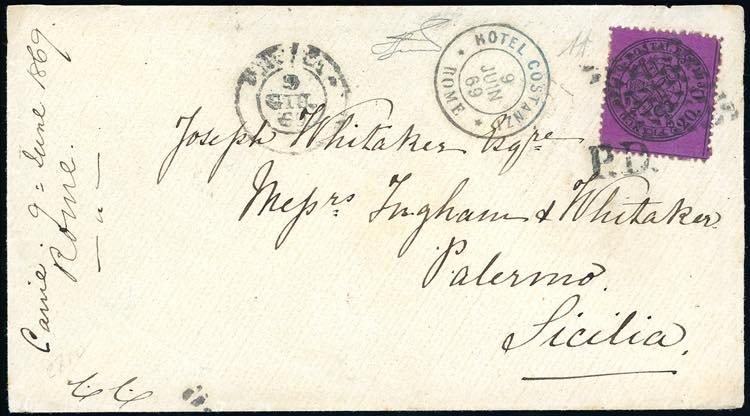 HOTEL COSTANZI
ROME
9
JUIN
69
9
GIU
69
P.D.
Joseph Whitaker Esqre
Messrs Ingham & Whitaker
Palermo.
Sicilia.
Carrie. 9 = June 1869.
Rome.